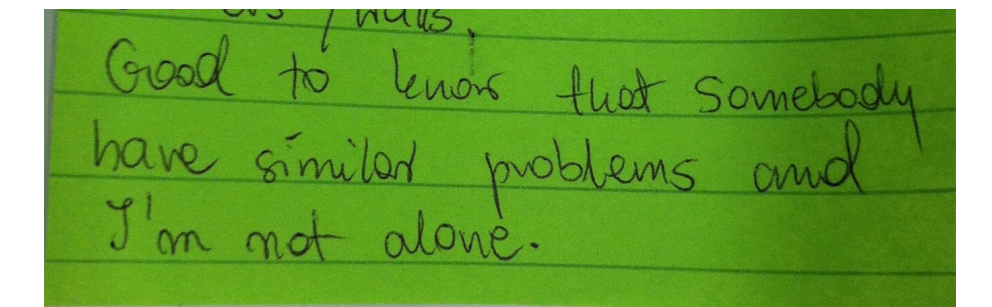 Good to know that Somebody
have similar problems and
I'm not alone.